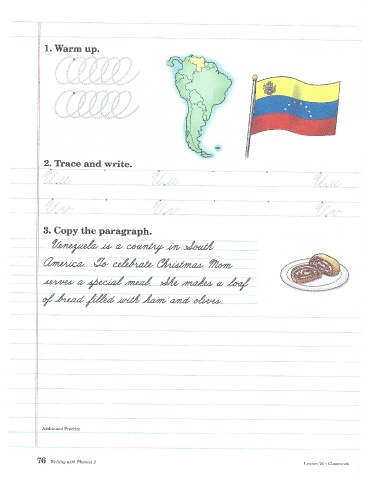 1. Warm up.
2. Trace and write.
Uu Uu Uu
Vv Vv Vv
3. Copy the paragraph.
Venezuela is a country in South
America. To celebrate Christmas, Mom
serves a special meal. She makes a loaf
of bread filled with ham and olives.
Additional Practice
76 Writing with Phonics 2
Lesson 76 • Classwork